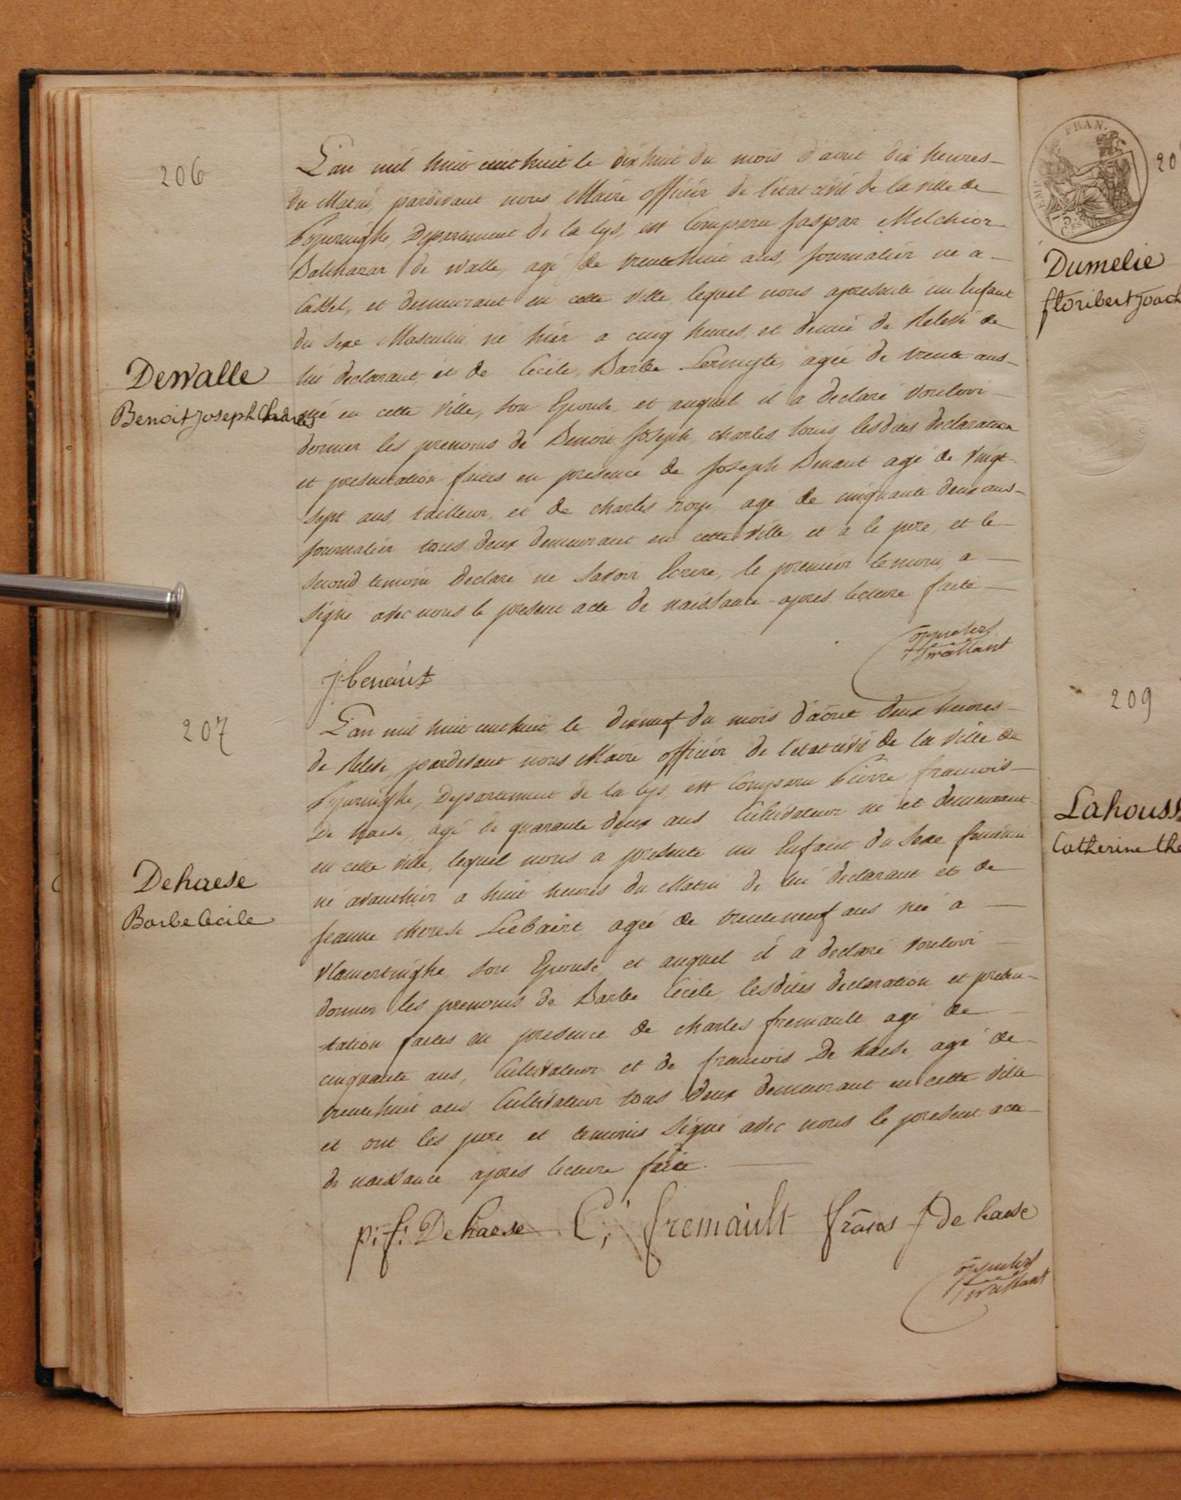 206
L'an mil huit cent huit le dixhuit du mois d'aout dix heures
du Matin pardevant nous Maire officier de l'etat civil de la ville de
Poperinghe, Departement de la Lys, est Comparu Jaspar Melchior
Balthazar de walle, agé de trentehuit ans, journalier né a
Cassel, et demeurant en cette ville, lequel nous a presenté un Enfant
du sexe Masculin né hier a cinq heures et demie de Relevé de
lui declarant, et de Cécile, Barbe agée de trente ans
née en cette ville, son Epouse, et auquel il a declaré vouloir
donner les prenoms de Benoit Joseph charles, lesdites declaration
et presentation faites en presence de Joseph Benaut agé de vingt
sept ans, tailleur, et de charles agé de cinquante deux ans
journalier tous deux demeurant en cette ville, et a le pere, et le
second temoin declaré ne savoir Ecrire, le premier temoin a
signé avec nous le present acte de naissance après lecture faite
DeWalle
Benoit Joseph Charles
j: benaut
207
L'an mil huit cent huit, le dixneuf du mois d'aout deux heures
de Relevé, pardevant nous Maire officier de l'etat civil de la ville de
Poperinghe, Departement de la Lys, est Comparu Pierre francois
De haese, agé de quarante deux ans Cultivateur né et demeurant
en cette ville, lequel nous a presenté un Enfant du sexe feminin
né avanthier a huit heures du Matin de lui declarant et de
jeanne therese agée de trenteneuf ans née a
vlamertinghe, son Epouse, et auquel il a declaré vouloir
donner les prenoms de Barbe Cecile, lesdites declaration et presen-
tation faites en presence de charles fremault agé de
cinquante ans, Cultivateur et de francois De haese agé de
trentehuit ans Cultivateur tous deux demeurant en cette ville
et ont les pere et temoins signé avec nous le present acte
de naissance après lecture faite.
Dehaese
Barbe Cecile
p: f: De haese C: fremault frãcos J de haese
EMP. FRAN.
20
Dumelie
floribert Joach
209
Lahouss
Catherine the